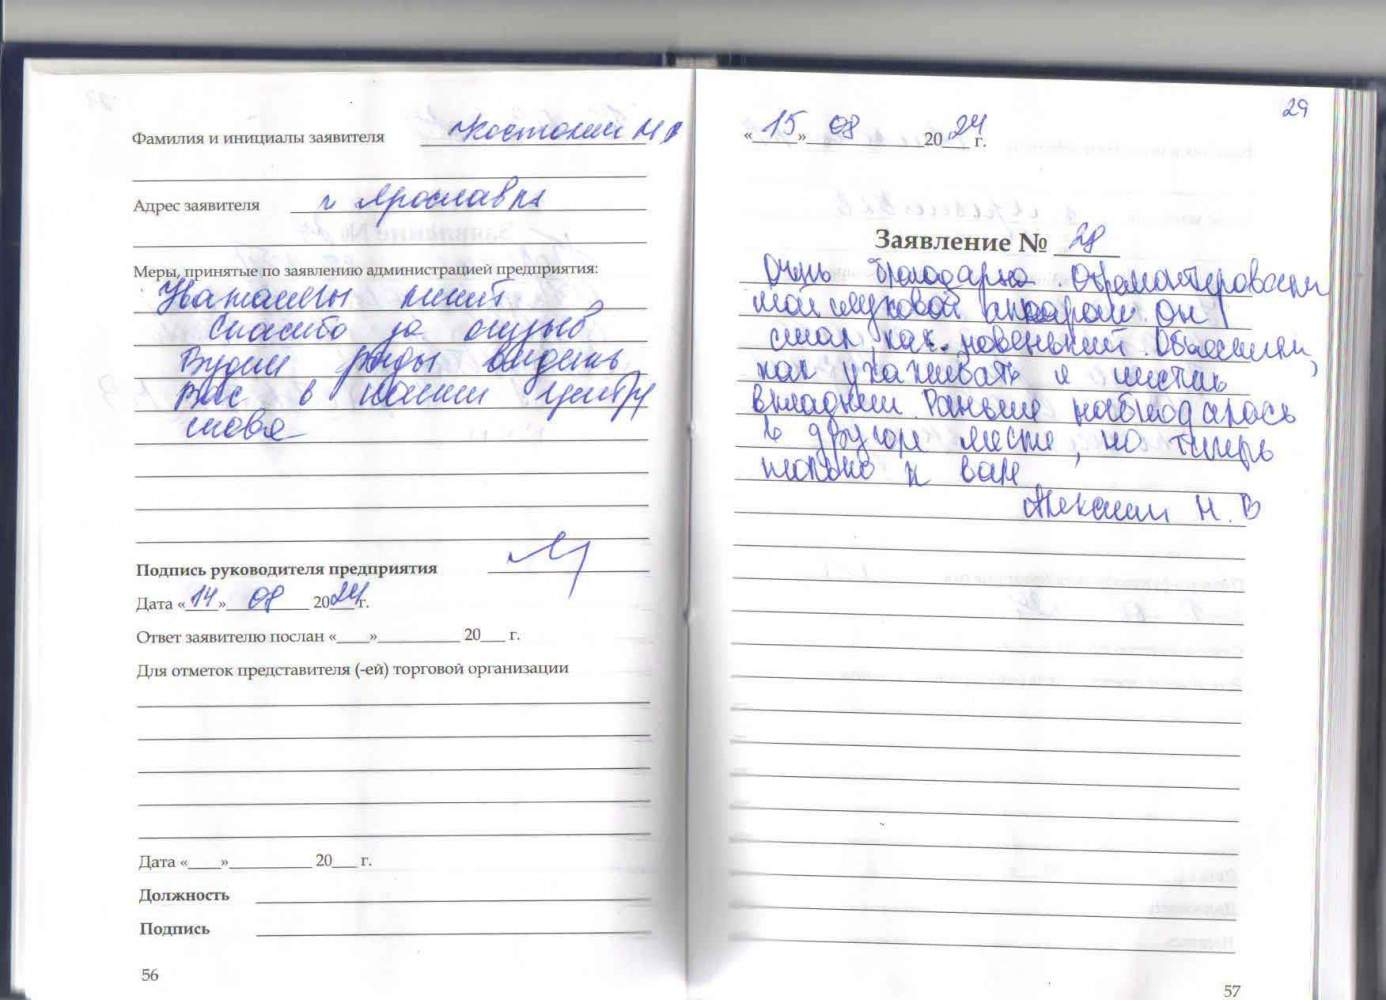 Фамилия и инициалы заявителя
Адрес заявителя г Ярославка
Меры, принятые по заявлению администрацией предприятия:
Спасибо за отзыв
Будем рады видеть
Вас в нашем центру
снова
Подпись руководителя предприятия
Дата «14» 08 2024 г.
Ответ заявителю послан «____»__________ 20___ г.
Для отметок представителя (-ей) торговой организации
Дата «____»__________ 20___ г.
Должность
Подпись
56
29
«15» 08 2024 г.
Заявление № 28
Очень благодарна. Отремонтировали
мой слуховой аппарат. Он
стал как новенький. Объяснили,
как ухаживать и чистить
вкладыш. Раньше наблюдалась
в другом месте, но теперь
только к вам
Н. В
57